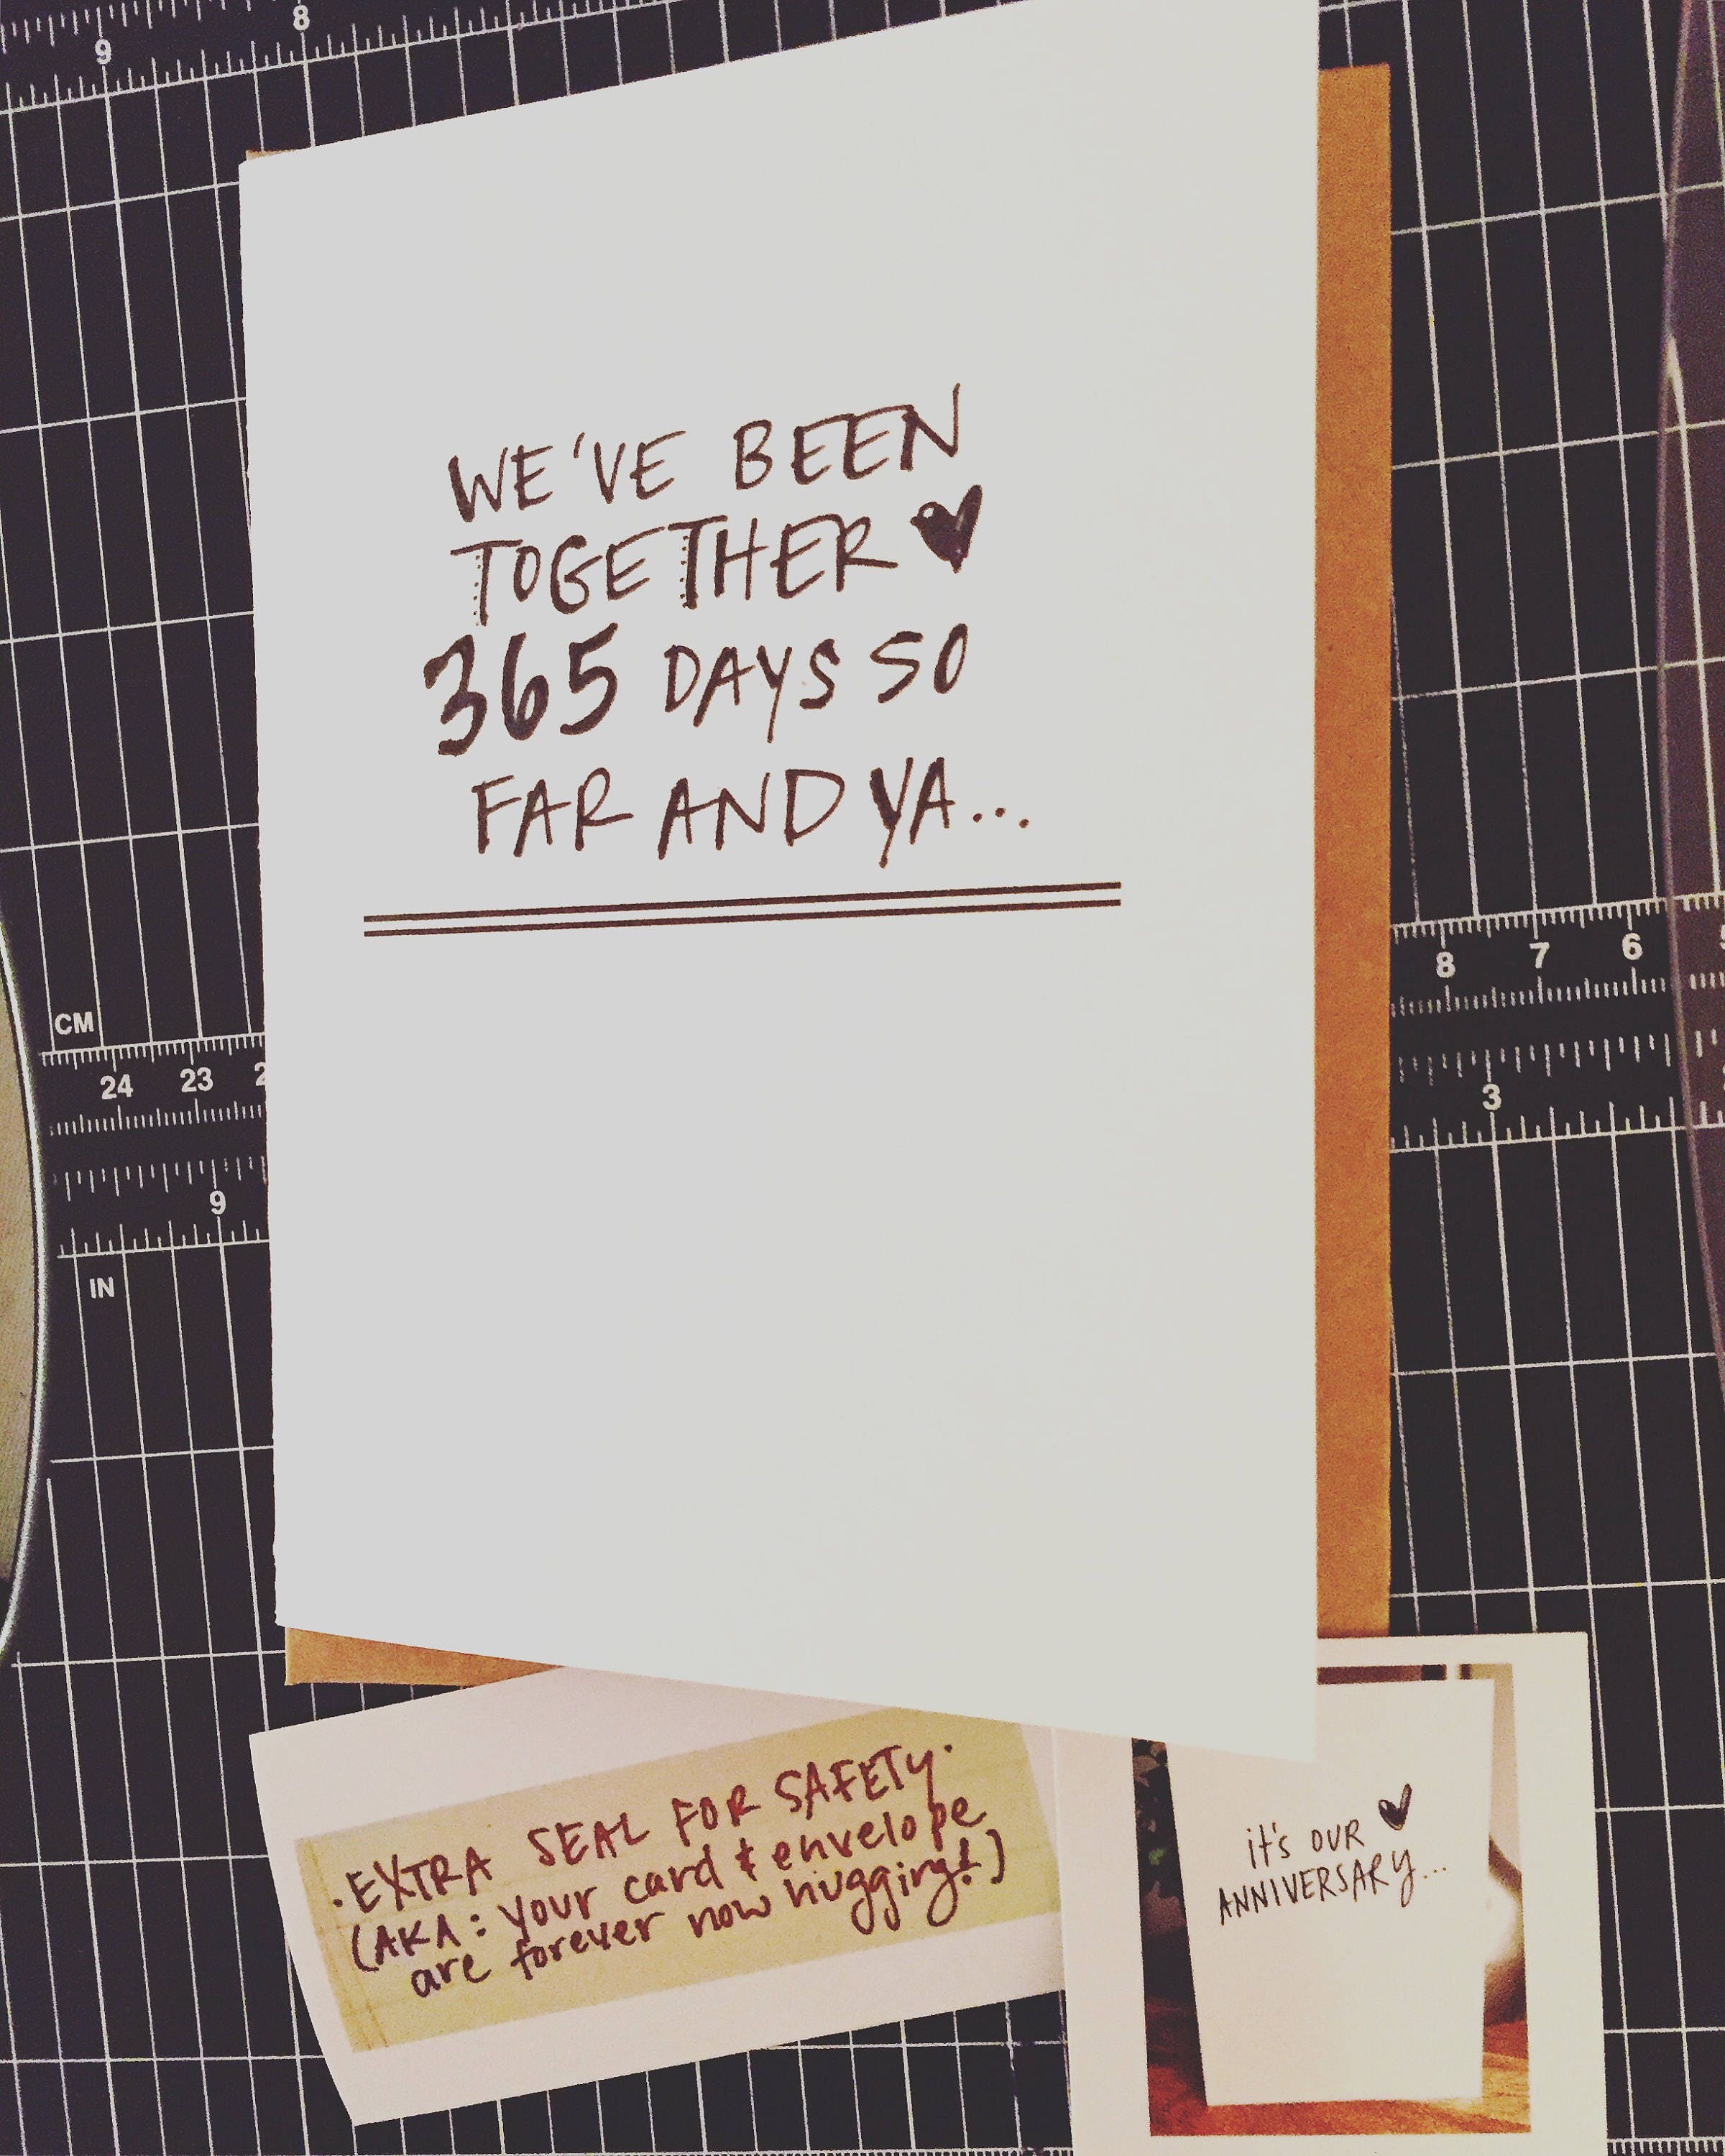 9 8
WE'VE BEEN
TOGETHER ♥
365 DAYS SO
FAR AND YA...
8 7 6
3
CM
24 23
9
IN
·EXTRA SEAL FOR SAFETY·
(AKA: your card & envelope
are forever now hugging!)
it's OUR ♥
ANNIVERSARY...